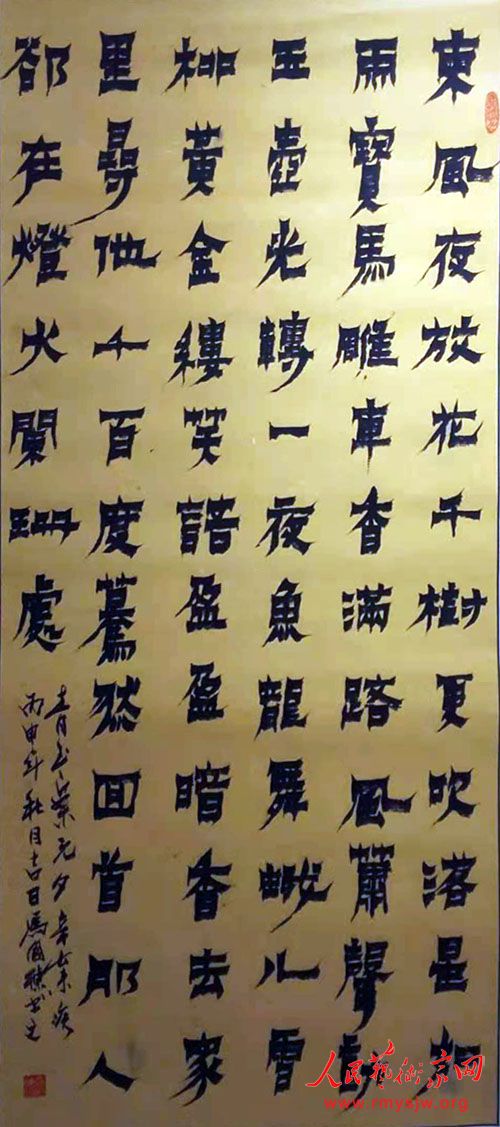 東風夜放花千樹更吹落星如
雨寶馬雕車香滿路風蕭聲動
玉壺光轉一夜魚龍舞蛾儿雪
柳黃金縷笑語盈盈暗香去家
里尋他千百度驀然回首那人
卻在燈火闌珊處
青玉案元夕辛棄疾
丙申年秋月吉日馬國書之
人民藝術家网
www.rmysjw.org